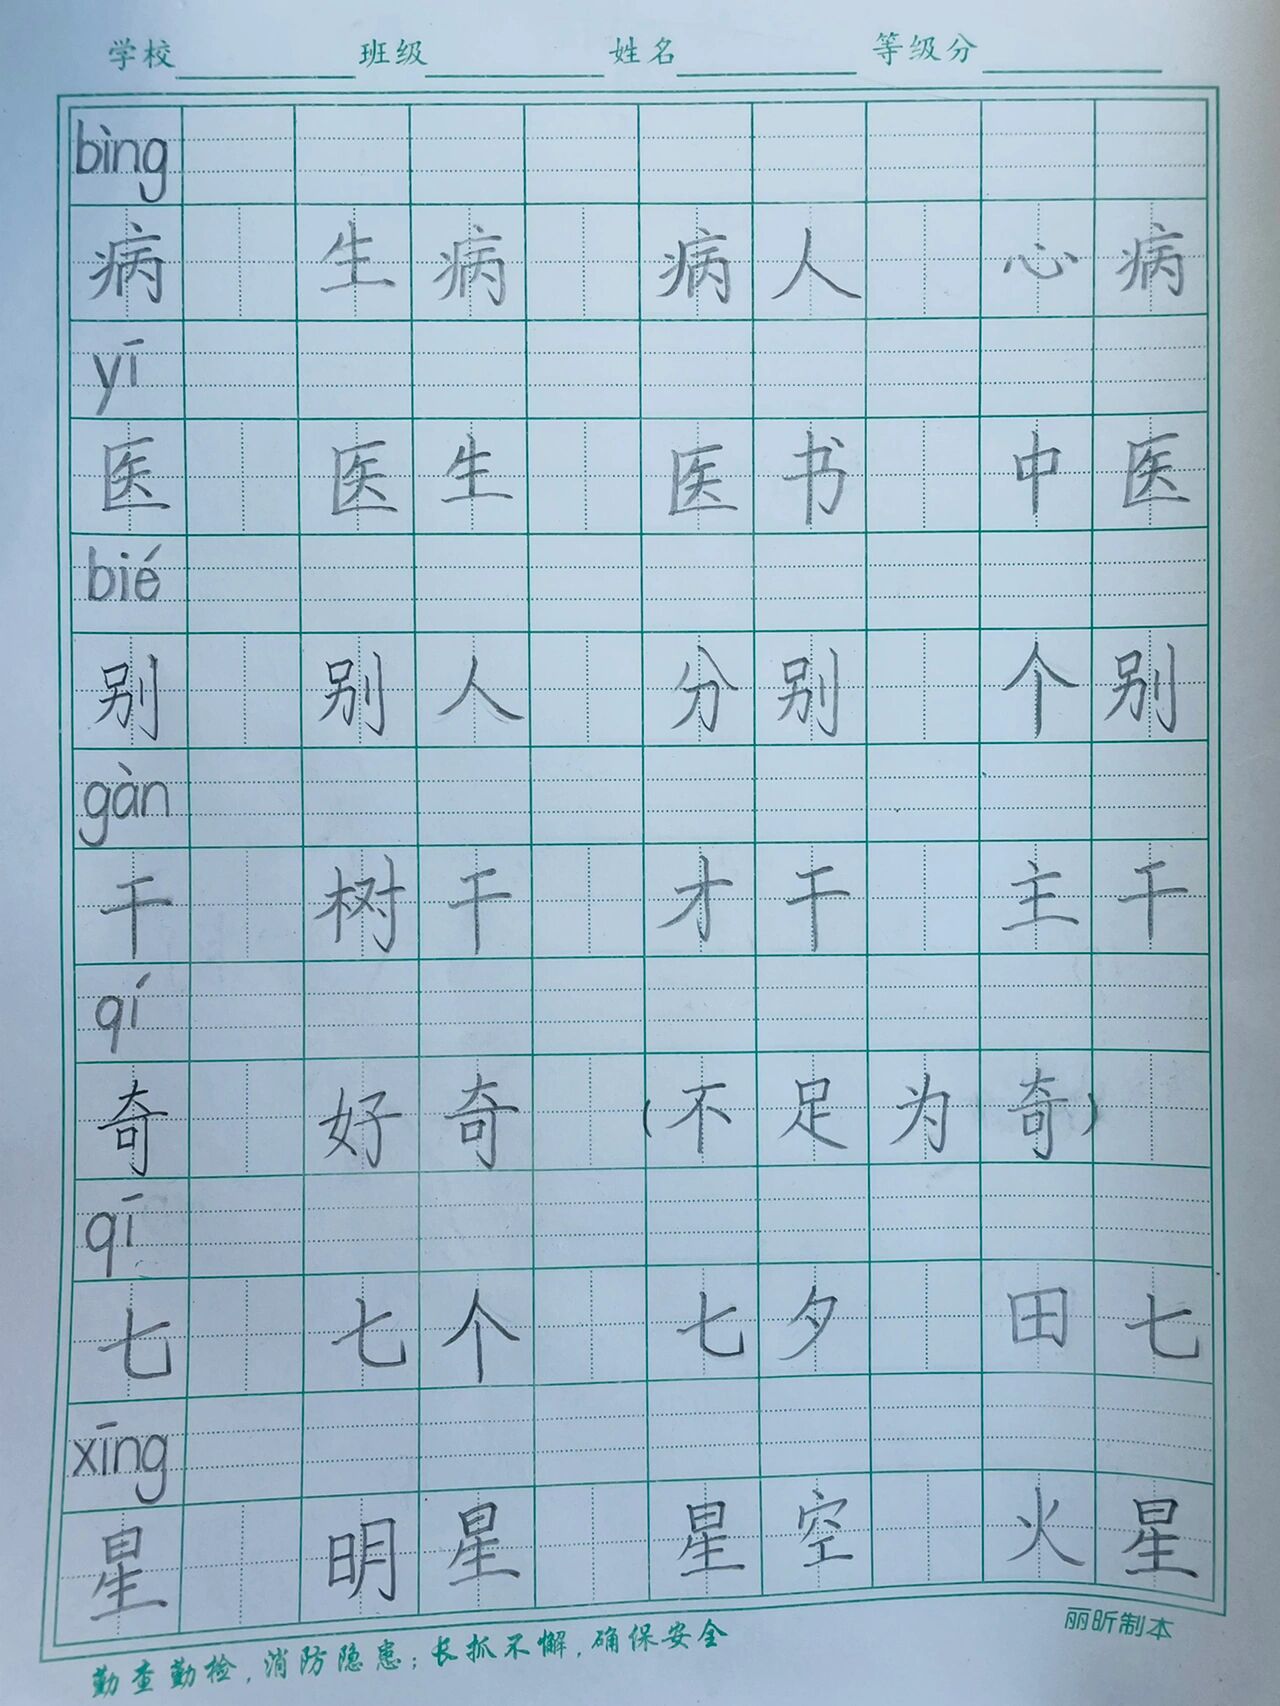 学校 班级 姓名 等级分
bìng
病 生病 病人 心病
yī
医 医生 医书 中医
bié
别 别人 分别 个别
gàn
干 树干 才干 主干
qí
奇 好奇 (不足为奇)
qī
七 七个 七夕 田七
xīng
星 明星 星空 火星
丽昕制本
勤查勤检,消防隐患;长抓不懈,确保安全